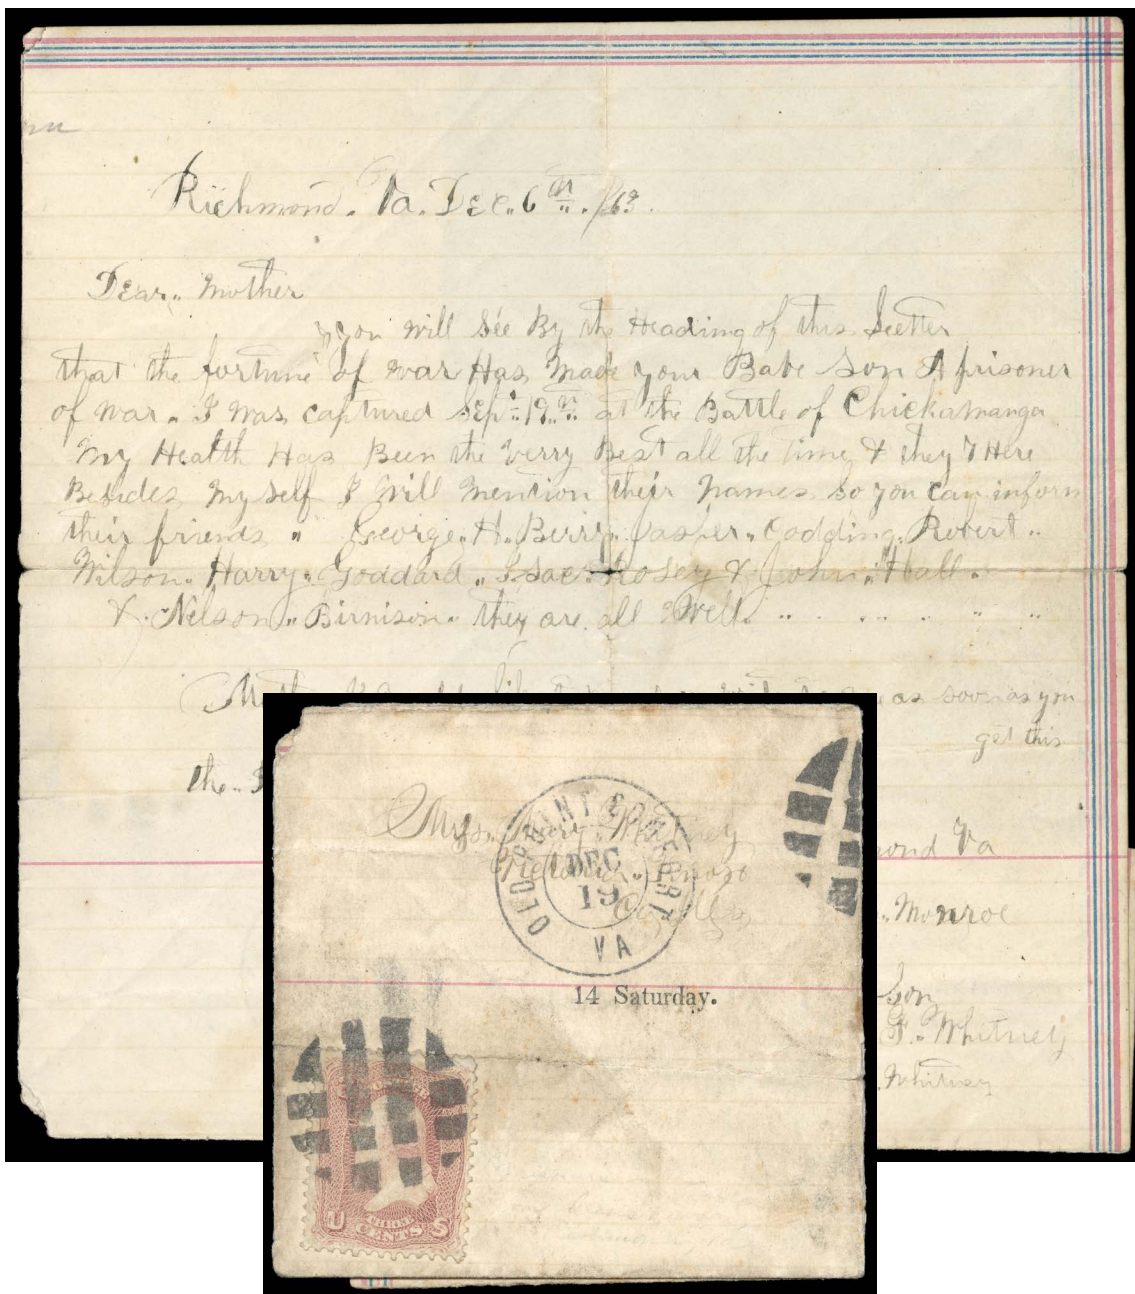 Richmond. Va. Dec. 6th /63.
Dear. Mother
you will see By the Heading of this Leetter
that the fortune of war Has Made your Babe Son A prisoner
of war. I was captured Sept. 19th at the Battle of Chickamanga
My Health Has Been the verry Best all the time & they 7 Here
Besides My self I will Mention their Names so you can inform
their friends " George. H. Berry. Jasper. Codding. Robert
Wilson. Harry. Goddard. Isac Rosey & John. Hall.
& Nelson. Birnison. they are all Well.
as soon as you
get this
the.
ond Va
Monroe
Son
F. Whitney
Whitney
Mrs. Mary Whitney
Victoria. Knox
Co Ills
OLD POINT COMFORT
DEC
19
VA
14 Saturday.
U THREE S
CENTS